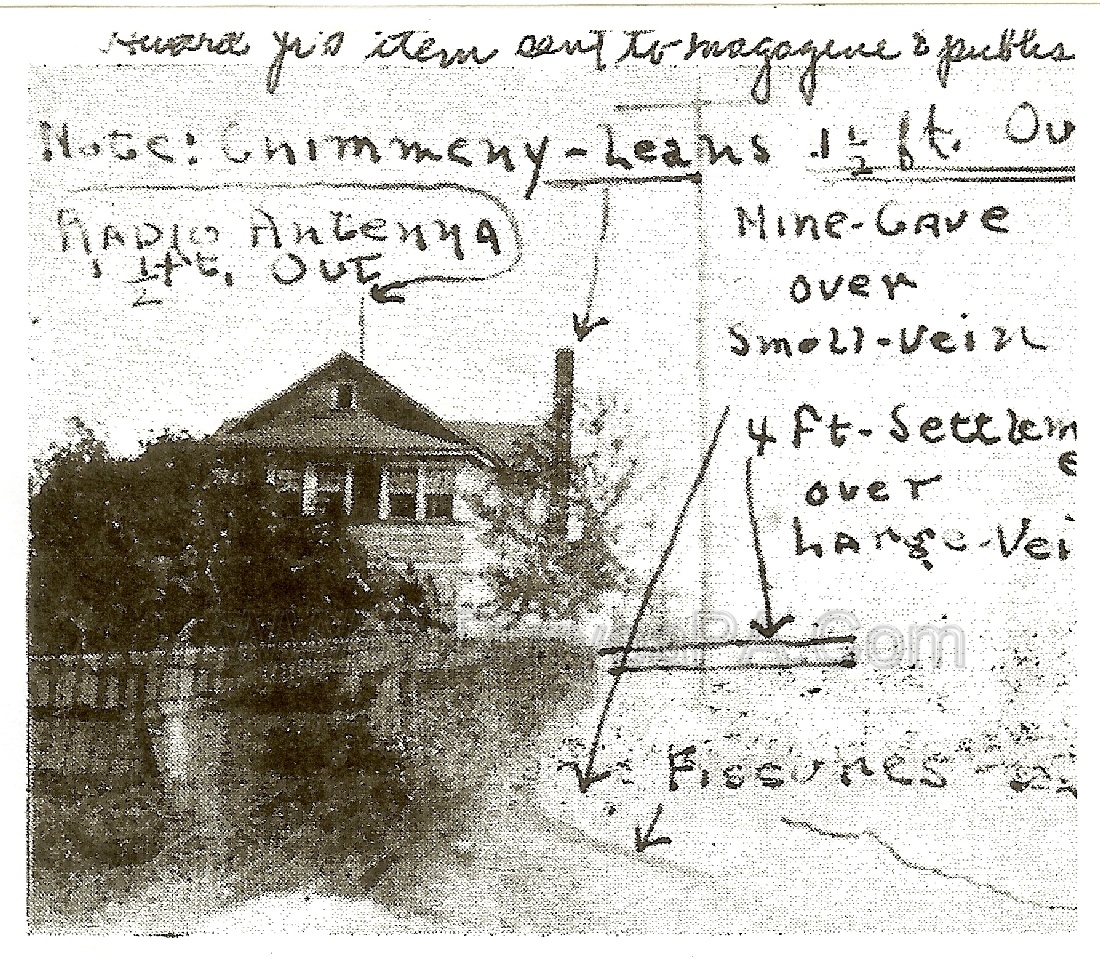 Howard Jr's item sent to magazine & publis
Note: Chimmeny-Leans 1 1/2 ft. Ou
RADIO Antenna
1 1/2 ft. OUT
Mine-Cave
over
Small-Vein
4 ft-Settlem
e
over
Large-Vei
PA.Com
Fissures